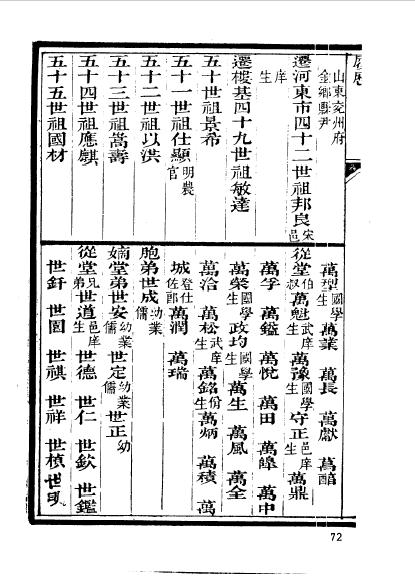 履歷
山東兗州府
金鄉縣尹
遷河東市四十二世祖邦良宋邑
庠
生
遷樓基四十九世祖敏達
五十世祖景希
五十一世祖仕顯明農
官
五十二世祖以洪
五十三世祖嵩壽
五十四世祖應麒
五十五世祖國材
萬型國學生萬業 萬長 萬獻 萬醕
從堂伯叔萬魁武庠生萬豫國學生守正邑庠生萬鼎
萬孚 萬鎰 萬悅 萬田 萬皞 萬中
萬榮國學生政均國學生萬生 萬風 萬全
萬洽 萬松武庠生萬銘份生萬炳 萬積 萬
城登仕佐郎萬潤 萬瑞
胞弟世成幼業儒
嫡堂弟世安幼業儒世定幼業儒世正幼
從堂兄弟世道邑庠生世德 世仁 世欽 世鑑
世釬 世圖 世祺 世祥 世楨 世明
72